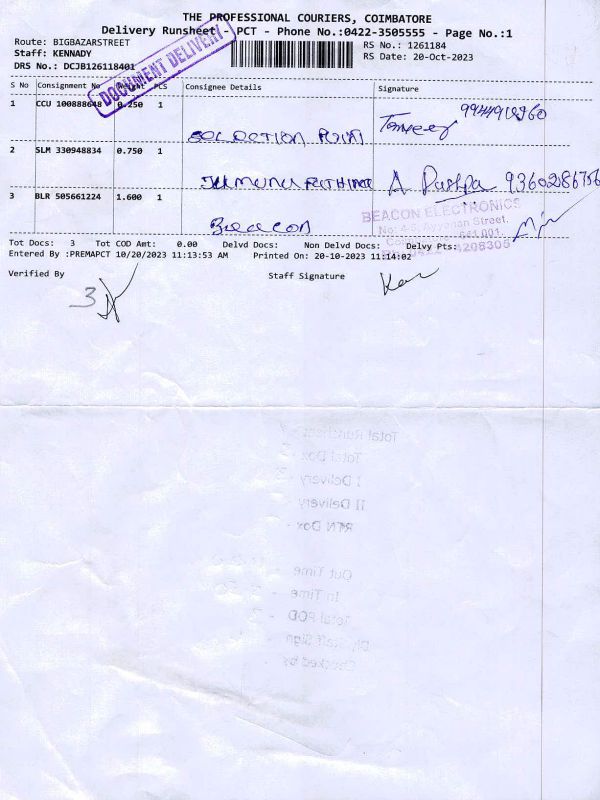 THE PROFESSIONAL COURIERS, COIMBATORE
Delivery Runsheet - PCT - Phone No.:0422-3505555 - Page No.:1
Route: BIGBAZARSTREET
Staff: KENNADY
DRS No.: DCJB126118401
RS No.: 1261184
RS Date: 20-Oct-2023
DOCUMENT DELIVERY
S No Consignment No Weight PCS Consignee Details Signature
1 CCU 100888648 0.250 1
2 SLM 330948834 0.750 1
A Pushpa 9360286756
3 BLR 505661224 1.600 1 Beacon
BEACON ELECTRONICS
Street,
641 001.
4208305
Tot Docs: 3 Tot COD Amt: 0.00 Delvd Docs: Non Delvd Docs: Delvy Pts:
Entered By :PREMAPCT 10/20/2023 11:13:53 AM Printed On: 20-10-2023 11:14:02
Verified By Staff Signature
3
Total Runsheet
Total Dox -
I Delivery -
II Delivery -
RTN Dox -
Out Time -
In Time -
Total POD -
Staff Sign
Checked by